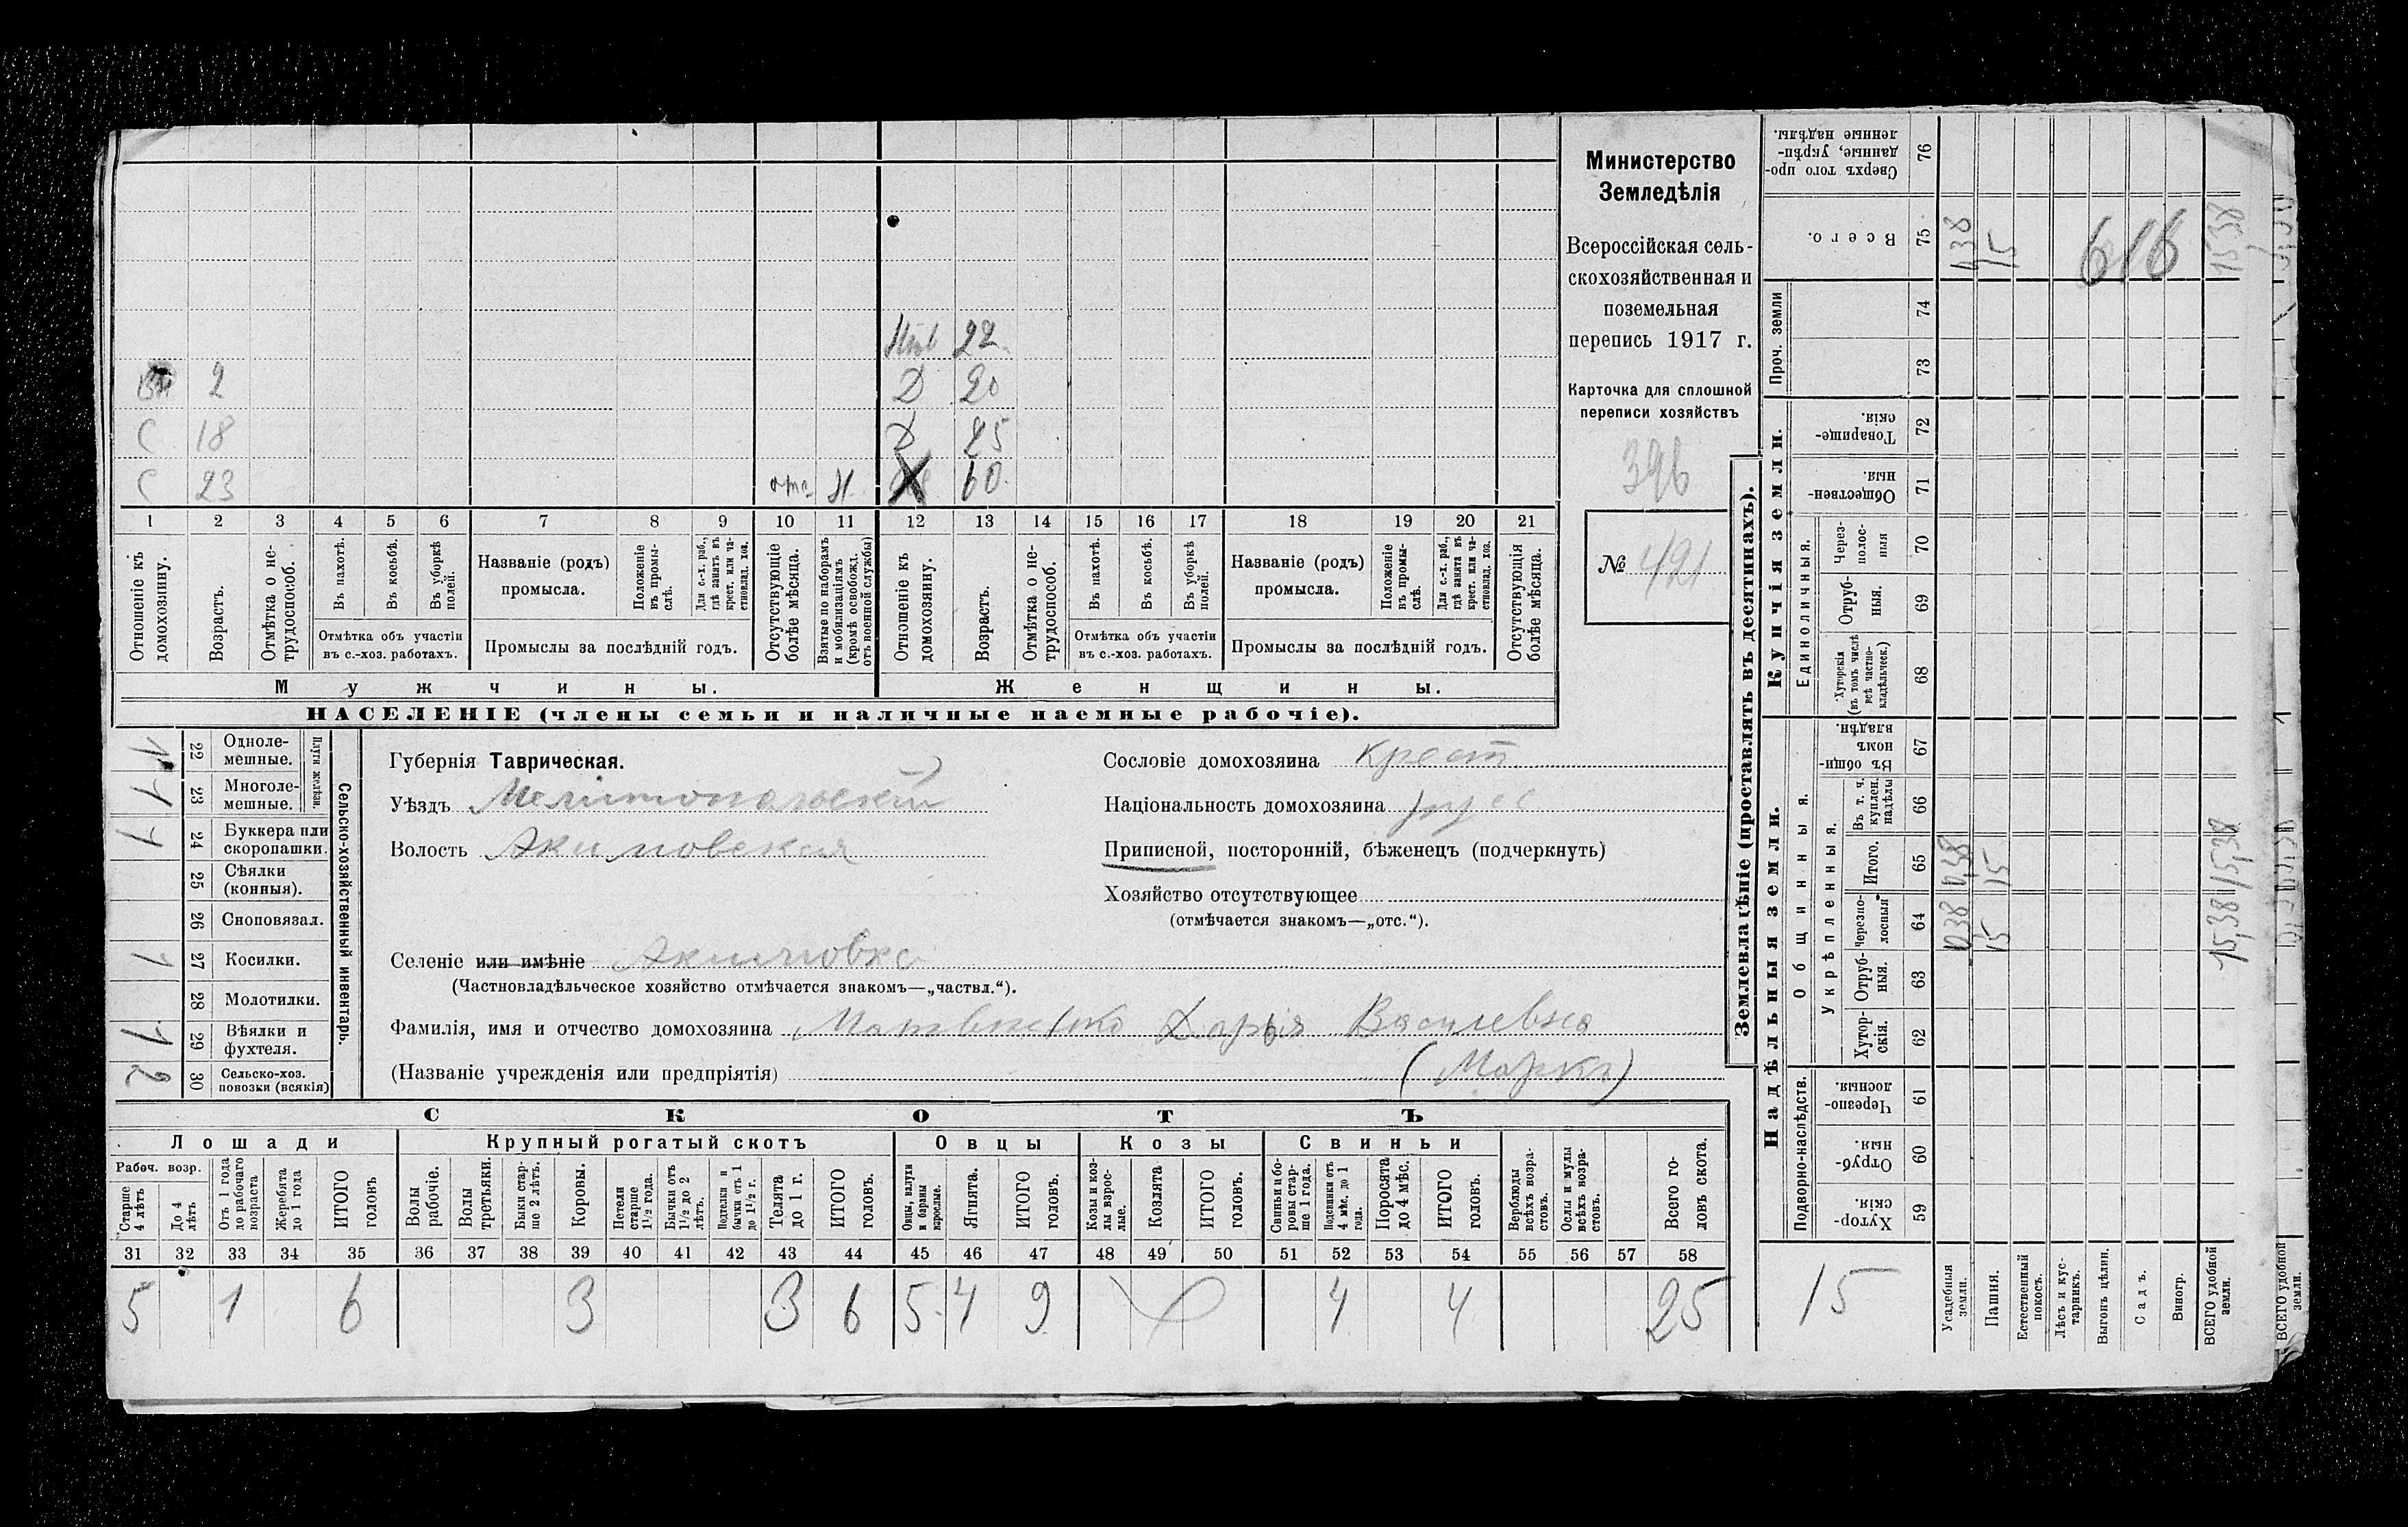 Министерство
Земледѣлія
Всероссійская сель-
скохозяйственная и
поземельная
перепись 1917 г.
Карточка для сплошной
переписи хозяйствъ
396
№ 421
22
2 Д 20
С 18 Д 25
С 23 отс 60
1 2 3 4 5 6 7 8 9 10 11 12 13 14 15 16 17 18 19 20 21
Отношеніе къ домохозяину.
Возрастъ.
Отмѣтка о не-трудоспособ.
Въ пахотѣ.
Въ косьбѣ.
Въ уборкѣ полей.
Отмѣтка объ участіи
въ с.-хоз. работахъ.
Названіе (родъ)
промысла.
Положеніе въ промы-слѣ.
Для с.-х. раб., гдѣ занятъ въ крест. или ча-стновлад. хоз.
Промыслы за послѣдній годъ.
Отсутствующіе болѣе мѣсяца.
Взятые по наборамъ и мобилизаціямъ (кромѣ освобожд. отъ военной службы)
Отношеніе къ домохозяину.
Возрастъ.
Отмѣтка о не-трудоспособ.
Въ пахотѣ.
Въ косьбѣ.
Въ уборкѣ полей.
Отмѣтка объ участіи
въ с.-хоз. работахъ.
Названіе (родъ)
промысла.
Положеніе въ промы-слѣ.
Для с.-х. раб., гдѣ занята въ крест. или ча-стновлад. хоз.
Промыслы за послѣдній годъ.
Отсутствующія болѣе мѣсяца.
Мужчины.
Женщины.
НАСЕЛЕНІЕ (члены семьи и наличные наемные рабочіе).
Сельско-хозяйственный инвентарь.
Плуги желѣзн.
22 Одноле-мешные.
1 23 Многоле-мешные.
1 24 Буккера или скоропашки.
25 Сѣялки (конныя).
26 Сноповязал.
1 27 Косилки.
28 Молотилки.
1 29 Вѣялки и фухтеля.
2 30 Сельско-хоз. повозки (всякія)
Губернія Таврическая.
Уѣздъ Мелитопольскій
Волость Акимовская
Сословіе домохозяина крест.
Національность домохозяина
Приписной, посторонній, бѣженецъ (подчеркнуть)
Хозяйство отсутствующее
(отмѣчается знакомъ—„отс.“).
Селеніе или имѣніе Акимовка
(Частновладѣльческое хозяйство отмѣчается знакомъ—„частвл.“).
Фамилія, имя и отчество домохозяина Дарья Василевна
(Названіе учрежденія или предпріятія)
СКОТЪ
Лошади
Крупный рогатый скотъ
Овцы
Козы
Свиньи
Рабоч. возр.
Старше 4 лѣтъ
До 4 лѣтъ
Отъ 1 года до рабочаго возраста
Жеребята до 1 года
ИТОГО головъ
Волы рабочіе.
Волы третьяки.
Быки стар-ше 2 лѣтъ.
Коровы.
Петели старше 1½ года.
Бычки отъ 1½ до 2 лѣтъ.
Подтелки и бычки отъ 1 до 1½ г.
Телята до 1 г.
ИТОГО головъ.
Овцы, валухи и бараны взрослые.
Ягнята.
ИТОГО головъ.
Козы и коз-лы взрос-лые.
Козлята
ИТОГО головъ.
Свиньи и бо-ровы стар-ше 1 года.
Подсвинки отъ 4 мѣс. до 1 года.
Поросята до 4 мѣс.
ИТОГО головъ.
Верблюды всѣхъ возра-стовъ.
Ослы и мулы всѣхъ возра-стовъ.
Всего го-ловъ скота.
31 32 33 34 35 36 37 38 39 40 41 42 43 44 45 46 47 48 49 50 51 52 53 54 55 56 57 58
5 1 6 3 3 6 5 4 9 4 4 25
Землевладѣніе (проставлять въ десятинахъ).
Надѣльныя земли.
Купчія земли.
Проч. земли
Подворно-наслѣдств.
Общинныя.
Укрѣпленныя.
Единоличныя.
Сверхъ того про-данные, укрѣп-ленные надѣлы. 76
Всего. 75 0,38 15 616 15,38
74
73
Товарище-скія. 72
Обществен-ныя. 71
Через-полос-ныя 70
Отруб-ныя. 69
Хуторскія (въ томъ числѣ всѣ частно-владѣльческ.) 68
Въ общи-номъ владѣн. 67
Въ т. ч. куплен. надѣлы 66
Итого. 65 0,38 15 15,38
Черезпо-лосныя 64 0,38 15 15,38
Отруб-ныя. 63
Хутор-скія. 62
Черезпо-лосныя. 61
Отруб-ныя. 60
Хутор-скія. 59
15
Усадебныя земли.
Пашня.
Естественный покосъ.
Лѣсъ и кус-тарникъ.
Выгонъ цѣлин.
Садъ.
Виногр.
ВСЕГО удобной земли.
ВСЕГО удобной земли.